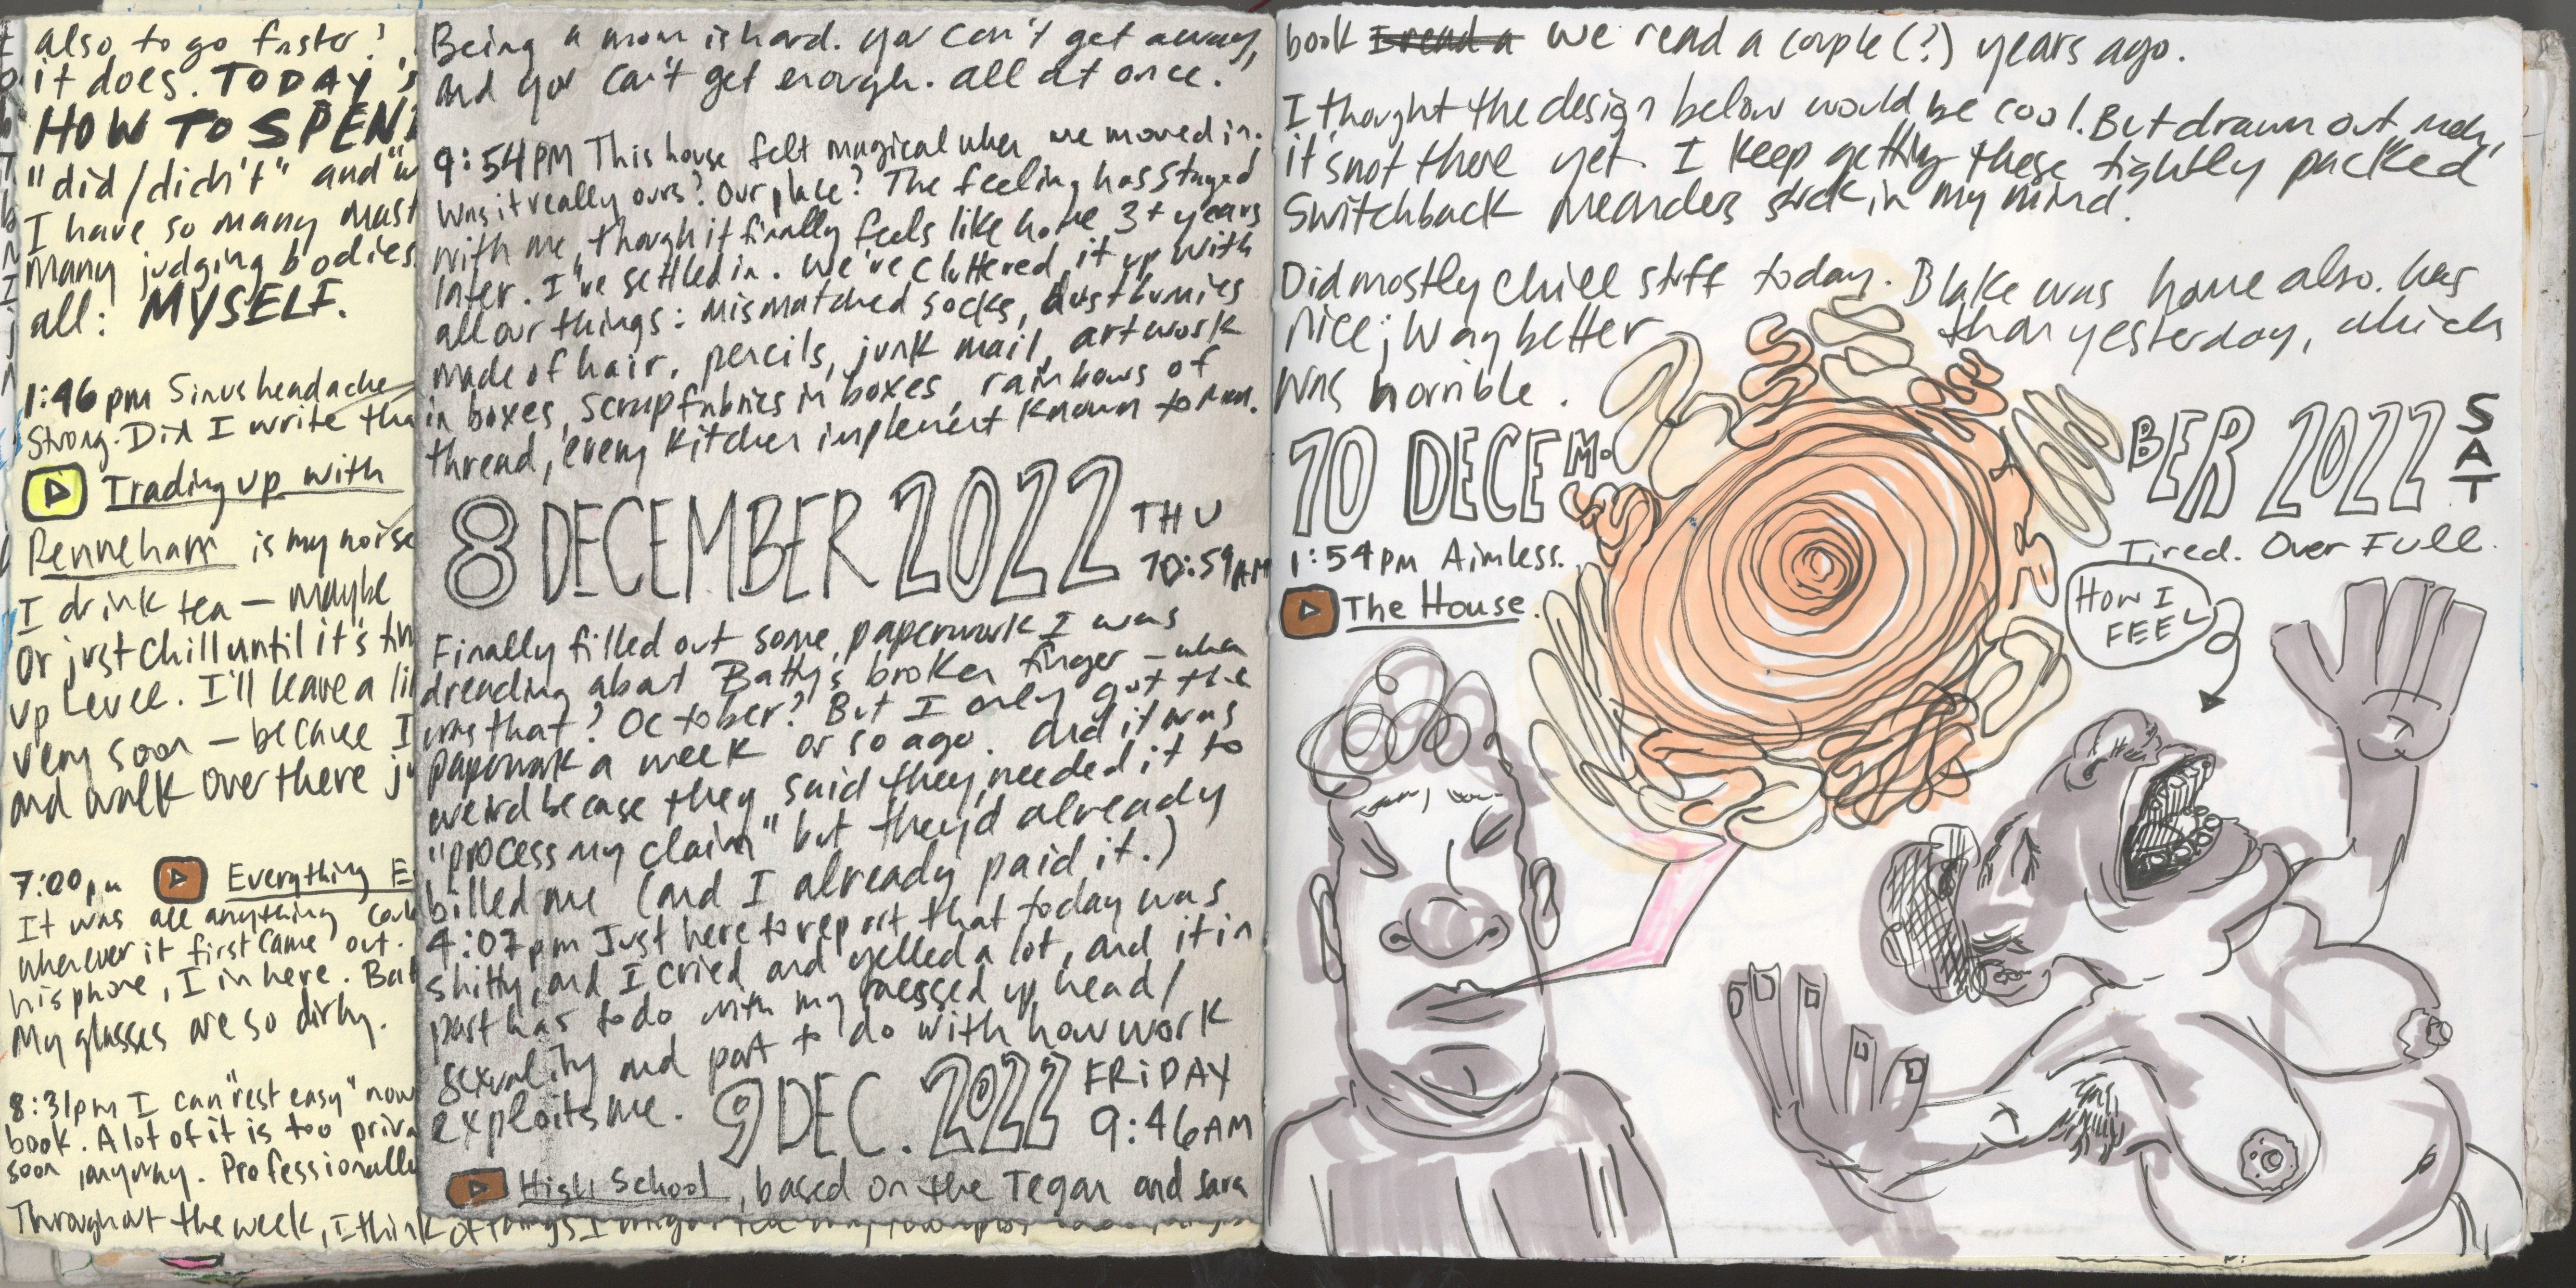 also to go faster?
it does. TODAY's
HOW TO SPEN
"did/didn't" and "w
I have so many mast
many judging bodies
all: MYSELF.
1:46 pm Sinus headache
strong. Did I write tha
Trading up with
Renneham is my noise
I drink tea — maybe
Or just chill until it's tim
up level. I'll leave a lit
very soon — because I
and walk over there j
7:00pm Everything E
It was all anything
whenever it first came out.
his phone, I in here. Bat
My glasses are so dirty.
8:31pm I can "rest easy" now
book. A lot of it is too priva
soon anyway. Professionally
Throughout the week, I think of things I might
Being a mom is hard. you can't get away,
and you can't get enough. all at once.
9:54PM This house felt magical when we moved in.
Was it really ours? Our place? The feeling has stayed
with me, though it finally feels like home 3+ years
later. I've settled in. We've cluttered it up with
all our things: mismatched socks, dust bunnies
made of hair, pencils, junk mail, artwork
in boxes, scrap fabrics in boxes, rainbows of
thread, every kitchen implement known to man.
8 DECEMBER 2022 THU
10:59AM
Finally filled out some paperwork I was
dreading about Batty's broken finger — when
was that? October? But I only got the
paperwork a week or so ago. And it was
weird because they said they needed it to
"process my claim" but they'd already
billed me (and I already paid it.)
4:07pm Just here to report that today was
shitty, and I cried and yelled a lot, and it in
part has to do with my messed up head/
sexuality and part to do with how work
exploits me. 9 DEC. 2022 FRiDAY
9:46AM
High School, based on the Tegan and Sara
book I read a we read a couple (?) years ago.
I thought the design below would be cool. But drawn out, meh,
it's not there yet. I keep getting these tightly packed
switchback meanders stuck in my mind.
Did mostly chill stuff today. Blake was home also. Was
nice; way better than yesterday, which
was horrible.
10 DECEMBER 2022 SAT
1:54pm Aimless. Tired. Over Full.
The House.
HOW I
FEEL